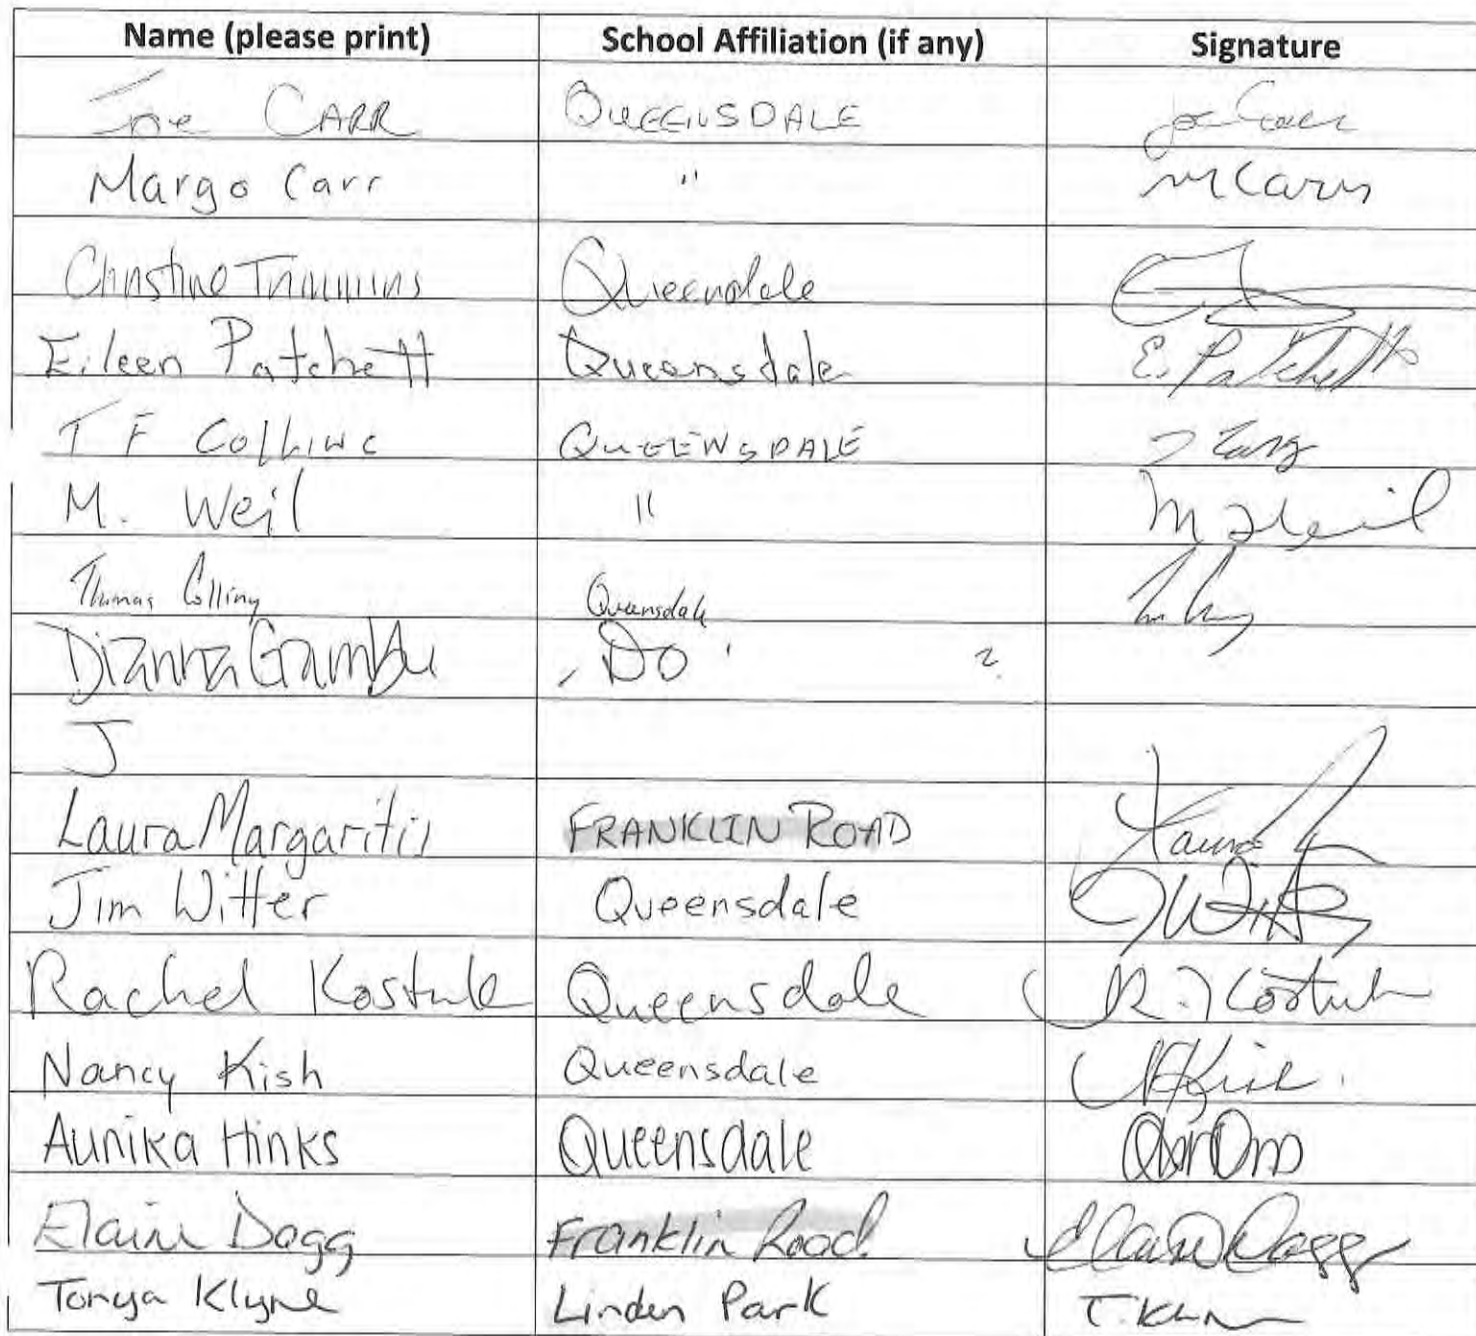 Name (please print) School Affiliation (if any) Signature
Joe CARR QUEENSDALE Joe Carr
Margo Carr " M Carr
Christine Timmins Queendale
Eileen Patchett Queensdale E. Patchett
T F Collins QUEENSDALE
M. Weil " M Weil
Thomas Colling Queensdale
Dianna Gamble Do
J
Laura Margaritis FRANKLIN ROAD Laura
Jim Witter Queensdale J Witter
Rachel Kostuk Queensdale R. Kostuk
Nancy Kish Queensdale N Kish
Aunika Hinks Queensdale
Elaine Dagg Franklin Road Elaine Dagg
Tonya Klyne Linden Park T. Kl